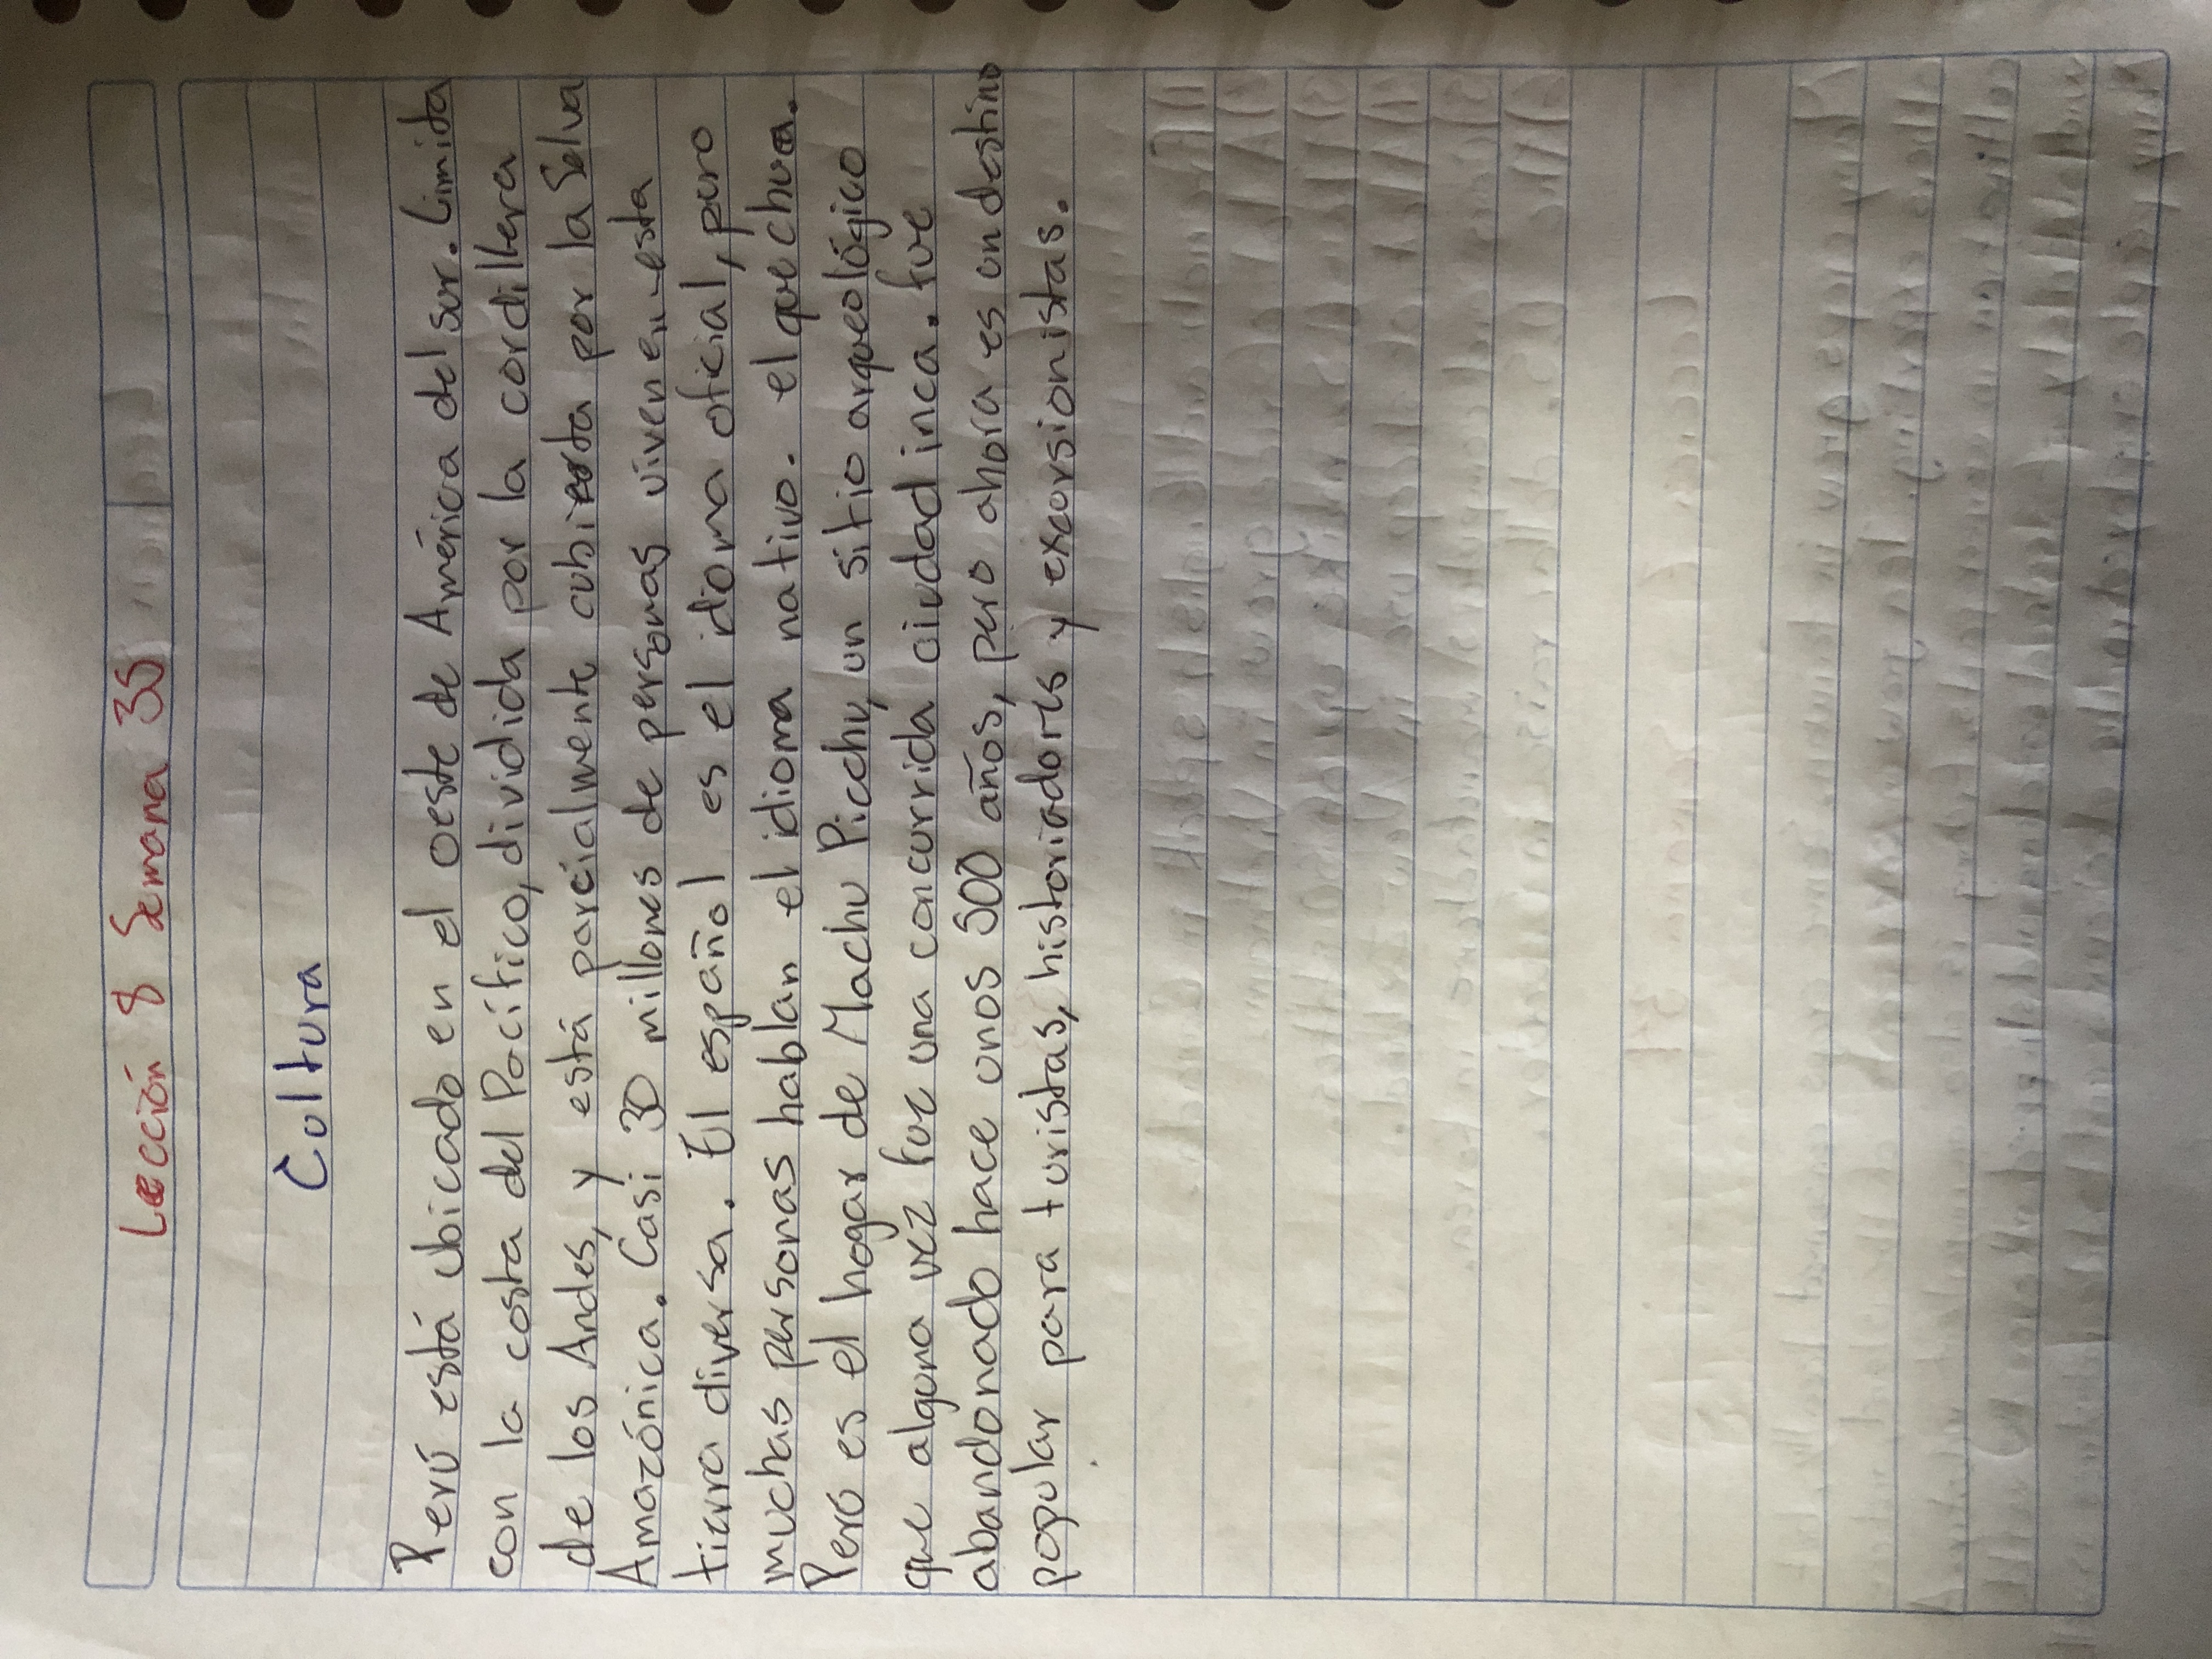 Lección 8 Semana 35
Cultura
Perú está ubicado en el oeste de América del sur. Limida
con la costa del Pacífico, dividida por la cordillera
de los Andes, y está parcialmente cubierta por la Selva
Amazónica. Casi 30 millones de personas viven en esta
tierra diversa. El español es el idioma oficial, pero
muchas personas hablan el idioma nativo. el quechua.
Pero es el hogar de Machu Picchu, un sitio arqueológico
que alguna vez fue una concurrida ciudad inca. fue
abandonado hace unos 500 años, pero ahora es un destino
popular para turistas, historiadores y excursionistas.